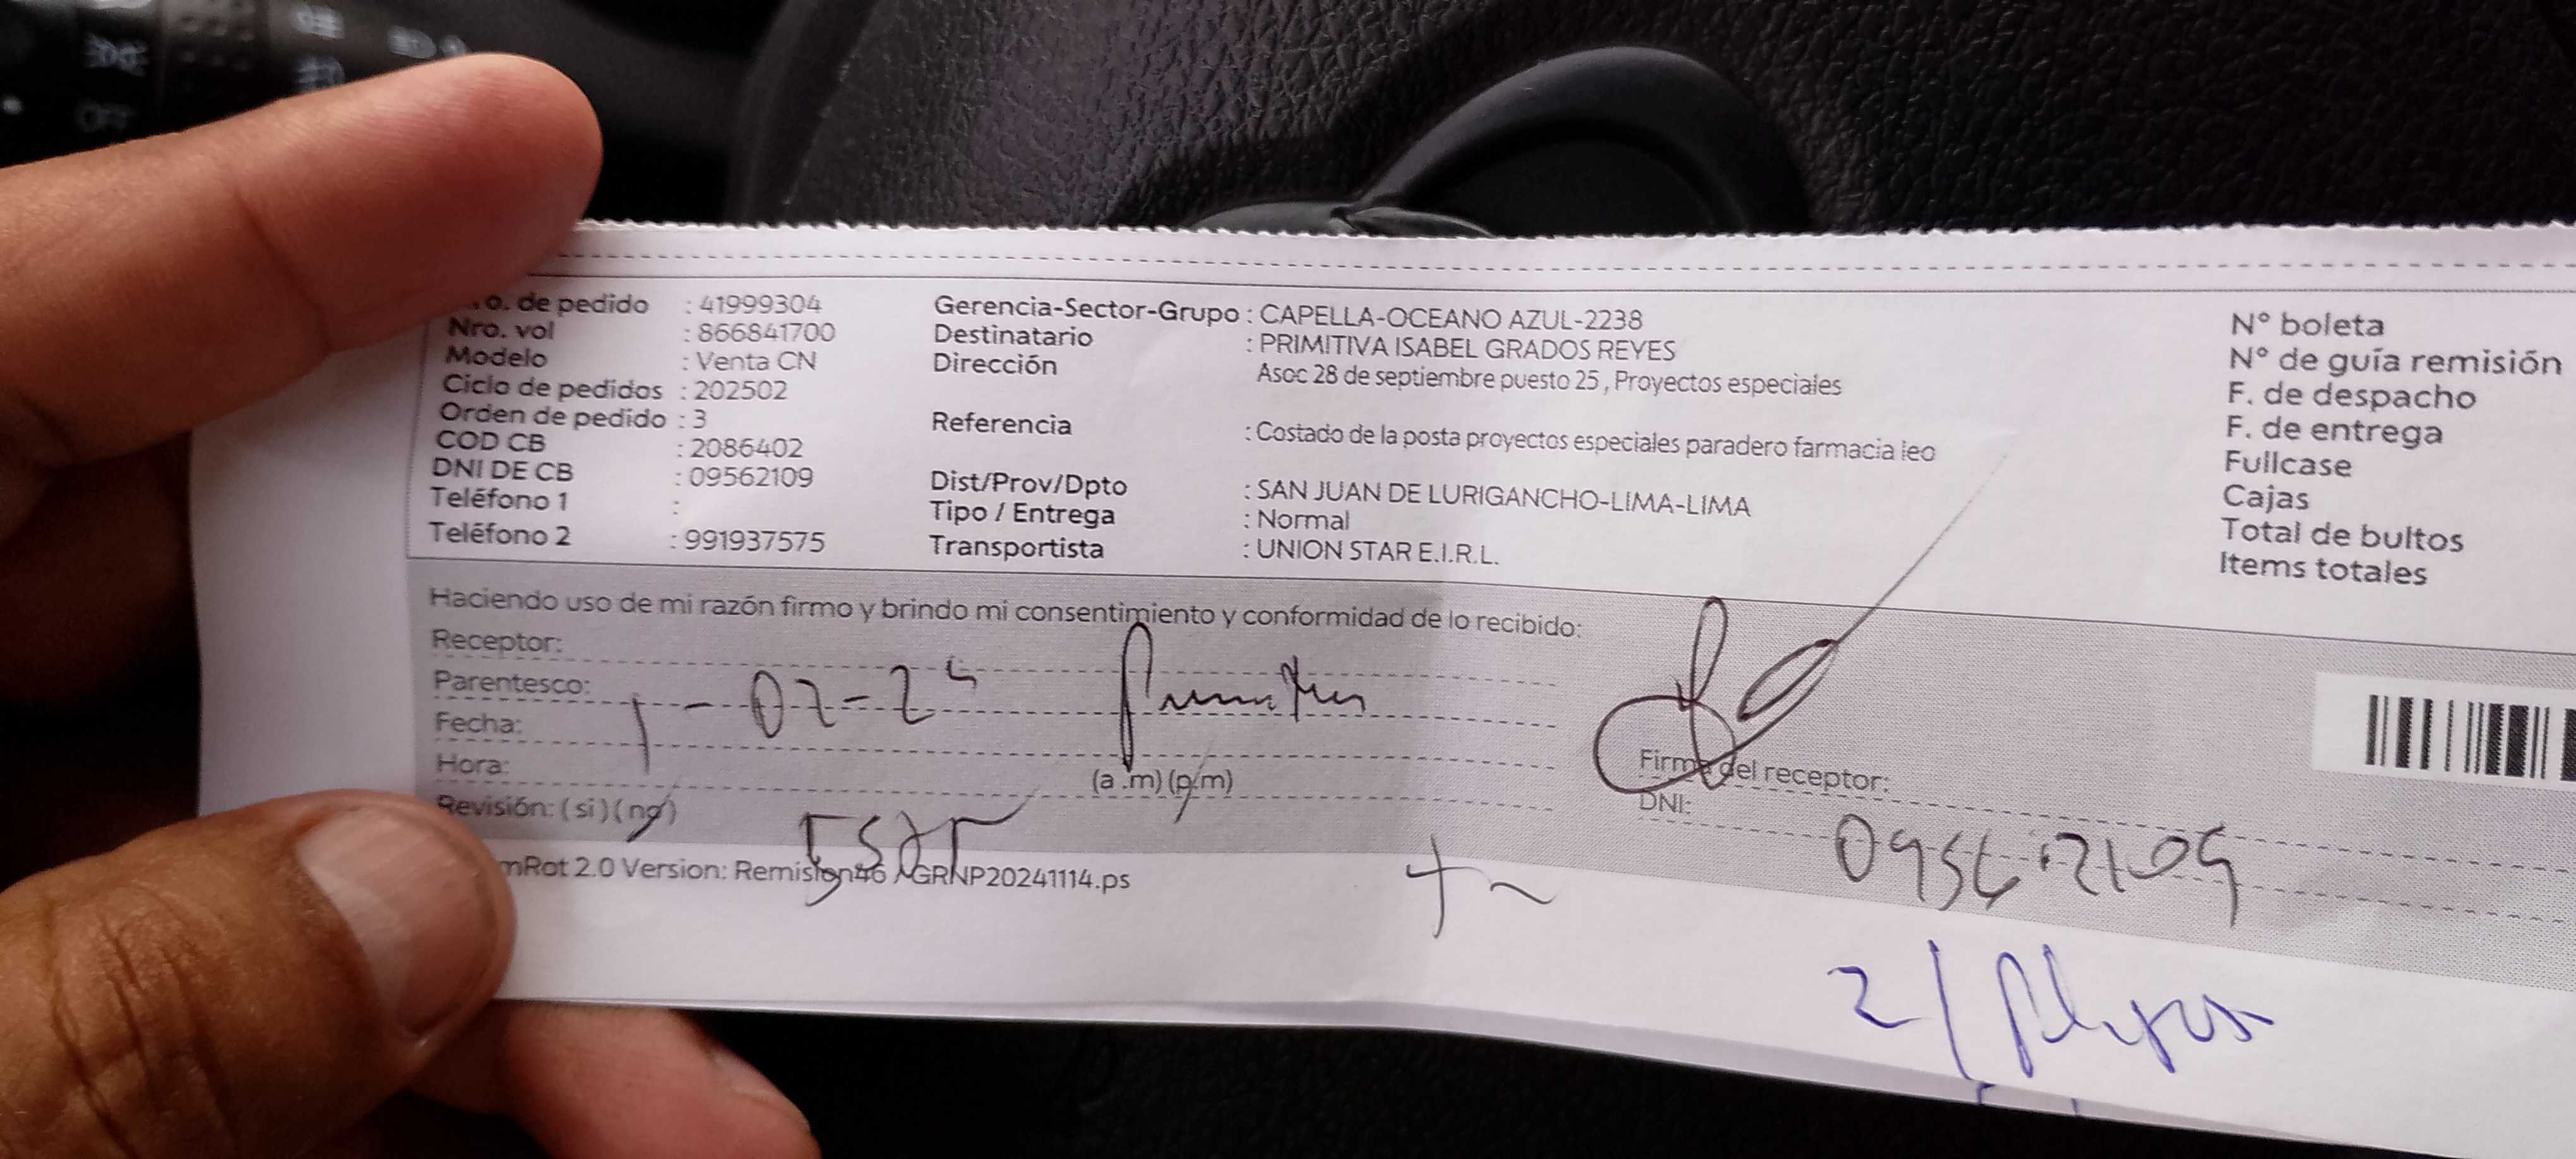 o. de pedido : 41999304
Nro. vol : 866841700
Modelo : Venta CN
Ciclo de pedidos : 202502
Orden de pedido : 3
COD CB : 2086402
DNI DE CB : 09562109
Teléfono 1 :
Teléfono 2 : 991937575
Gerencia-Sector-Grupo : CAPELLA-OCEANO AZUL-2238
Destinatario : PRIMITIVA ISABEL GRADOS REYES
Dirección Asoc 28 de septiembre puesto 25 , Proyectos especiales
Referencia : Costado de la posta proyectos especiales paradero farmacia leo
Dist/Prov/Dpto : SAN JUAN DE LURIGANCHO-LIMA-LIMA
Tipo / Entrega : Normal
Transportista : UNION STAR E.I.R.L.
N° boleta
N° de guía remisión
F. de despacho
F. de entrega
Fullcase
Cajas
Total de bultos
Items totales
Haciendo uso de mi razón firmo y brindo mi consentimiento y conformidad de lo recibido:
Receptor:
Parentesco:
1-02-25
Fecha:
Hora: (a .m) (p.m)
Revisión: ( si ) ( no )
Firma del receptor:
DNI:
09562109
mRot 2.0 Version: Remision46 / GRNP20241114.ps
OFF